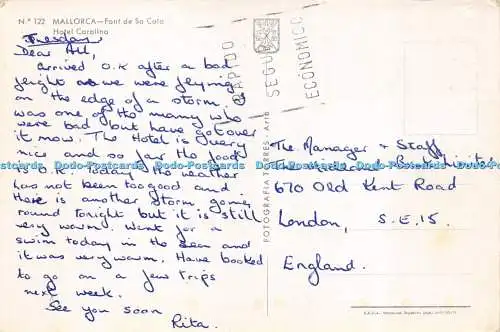 N.º 122 MALLORCA—Font de Sa Cala
Hotel Carolina
Tuesday
Dear All,
arrived O.K after a bad
flight as we were flying
on the edge of a storm. I
was one of the many who
were bad but have got over
it now. The Hotel is very
nice and so far the food
is O.K. Today the weather
has not been too good and
there is another storm going
round tonight but it is still
very warm. Went for a
swim today in the sea and
it was very warm. Have booked
to go on a few trips
next week.
See you soon
Rita.
RAPIDO
SEGURO
ECONOMICO
FOTOGRAFIA TORRES
The Manager + Staff
670 Old Kent Road
London, S.E.15.
England.
Dodo-Postcards Dodo-Postcards Dodo-Postcards Dodo-Postcards